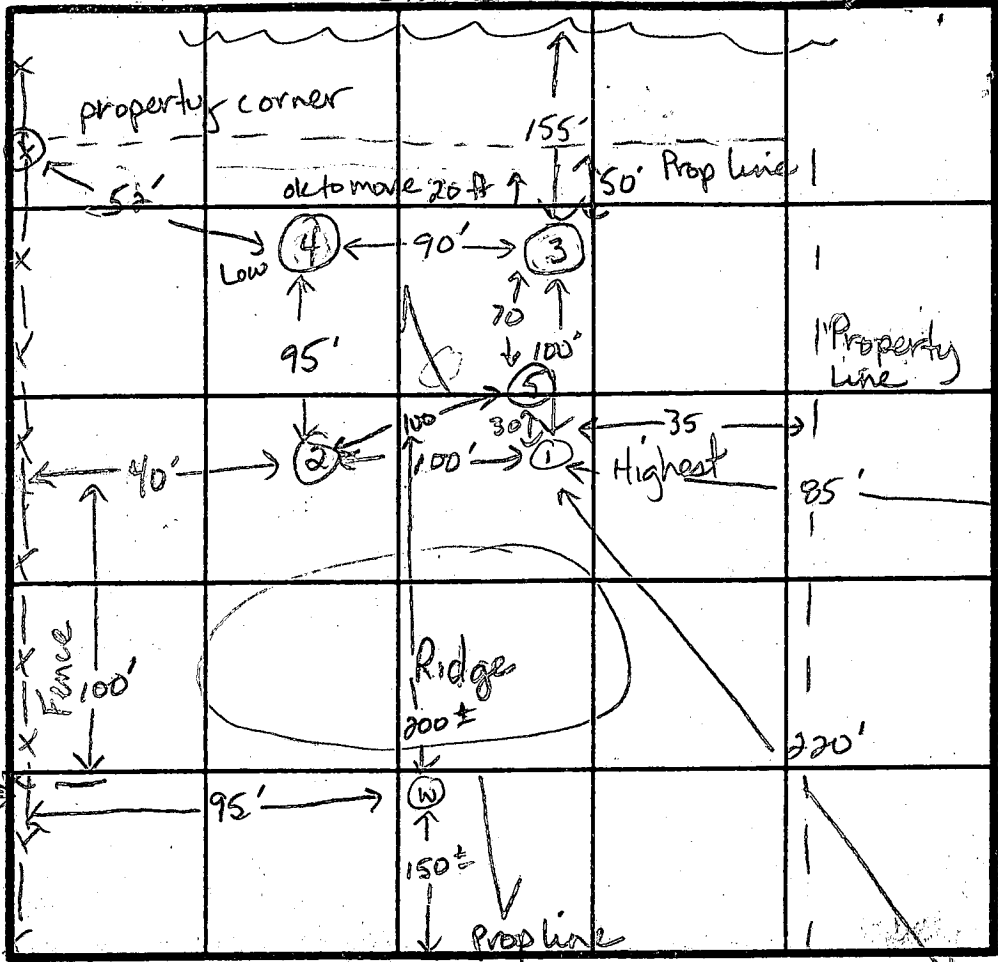 property corner
X
155'
52'
ok to move 20 ft
50' Prop line
4
90'
3
Low
70
95'
100'
Property
Line
5
100
30
35
2
40'
100'
1
Highest
85'
Fence
100'
Ridge
200±
220'
95'
W
150±
Prop line